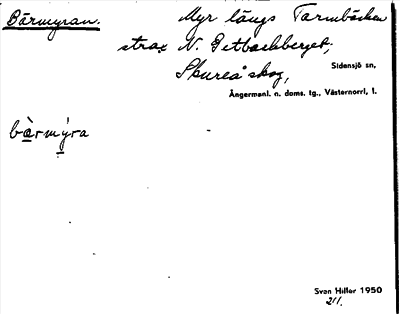 Bärmyran.
Myr längs Tarmbäcken
strax N. Getbackberget;
Skureå skog,
Sidensjö sn,
Ångermanl. n. doms. tg., Västernorrl. l.
bàrmýra
Sven Hiller 1950
211.